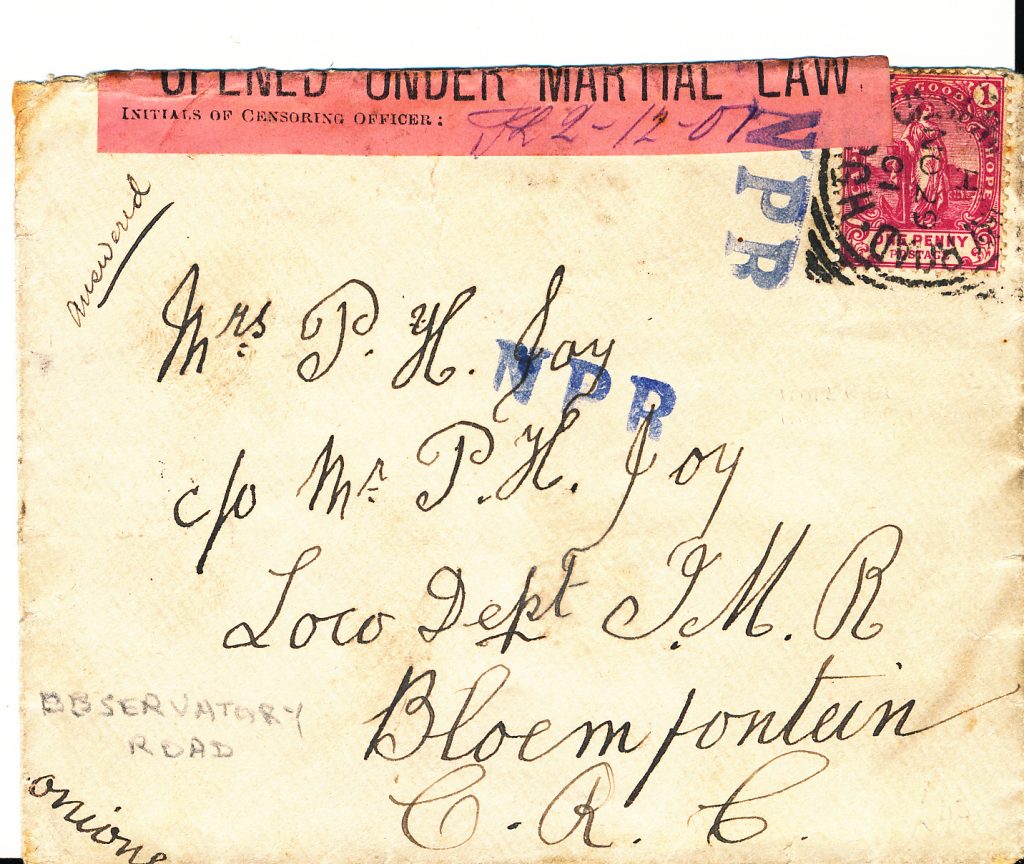 OPENED UNDER MARTIAL LAW
INITIALS OF CENSORING OFFICER:
2-12-01
NPR
GOOD HOPE
1
ONE PENNY
POSTAGE
NO 29
01
answered
Mrs P. H. Joy
NPR
c/o Mr P. H. Joy
Loco Dept I. M. R
Bloemfontein
O. R. C.
OBSERVATORY
ROAD
onions